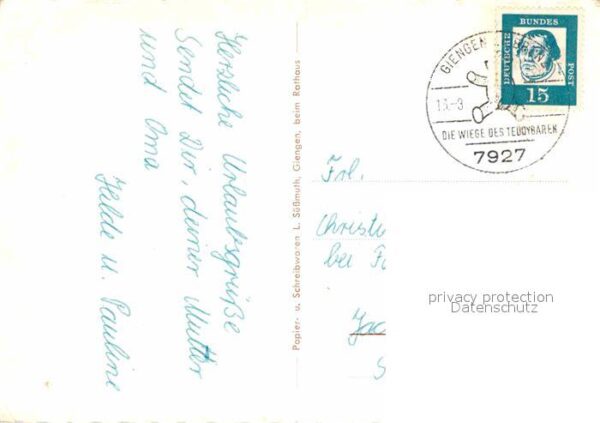 Herzliche Urlaubsgrüße
Sendet Dir, deiner Mutter
und Oma
Hilde u. Pauline
Papier- u. Schreibwaren L. Süßmuth, Giengen, beim Rathaus
GIENGEN
DIE WIEGE DES TEDDYBÄREN
7927
DEUTSCHE
BUNDES
POST
15
Frl.
Christi
bei Fa
privacy protection
Datenschutz